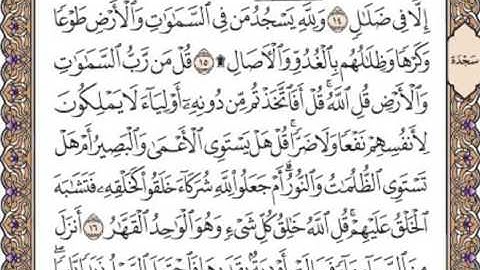 إِلَّا فِي ضَلَٰلٍ ١٤ وَلِلَّهِ يَسْجُدُ مَن فِي ٱلسَّمَٰوَٰتِ وَٱلْأَرْضِ طَوْعًا
وَكَرْهًا وَظِلَٰلُهُم بِٱلْغُدُوِّ وَٱلْءَاصَالِ ۩ ١٥ قُلْ مَن رَّبُّ ٱلسَّمَٰوَٰتِ
سَجْدَة
وَٱلْأَرْضِ قُلِ ٱللَّهُ ۚ قُلْ أَفَٱتَّخَذْتُم مِّن دُونِهِۦٓ أَوْلِيَآءَ لَا يَمْلِكُونَ
لِأَنفُسِهِمْ نَفْعًا وَلَا ضَرًّا ۚ قُلْ هَلْ يَسْتَوِي ٱلْأَعْمَىٰ وَٱلْبَصِيرُ أَمْ هَلْ
تَسْتَوِي ٱلظُّلُمَٰتُ وَٱلنُّورُ ۗ أَمْ جَعَلُوا۟ لِلَّهِ شُرَكَآءَ خَلَقُوا۟ كَخَلْقِهِۦ فَتَشَٰبَهَ
ٱلْخَلْقُ عَلَيْهِمْ ۚ قُلِ ٱللَّهُ خَٰلِقُ كُلِّ شَيْءٍ وَهُوَ ٱلْوَٰحِدُ ٱلْقَهَّٰرُ ١٦ أَنزَلَ